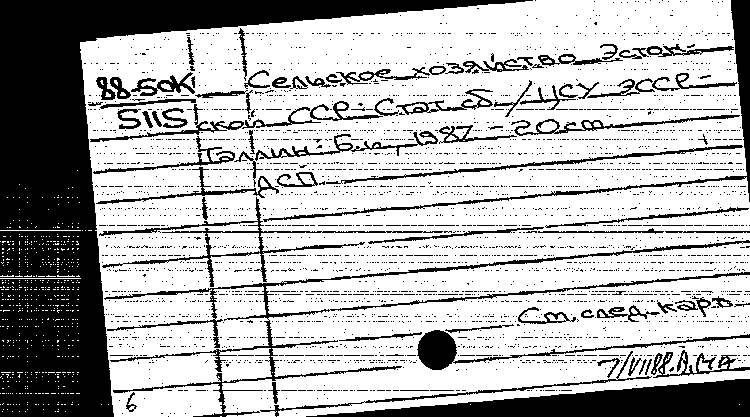 88-50К Сельское хозяйство Эстон-
5115 ской ССР: Стат. сб. / ЦСУ ЭССР -
Таллин: Б.и., 1987 - 20 cm
ДСП
См. след. карт
7/VII88.
6